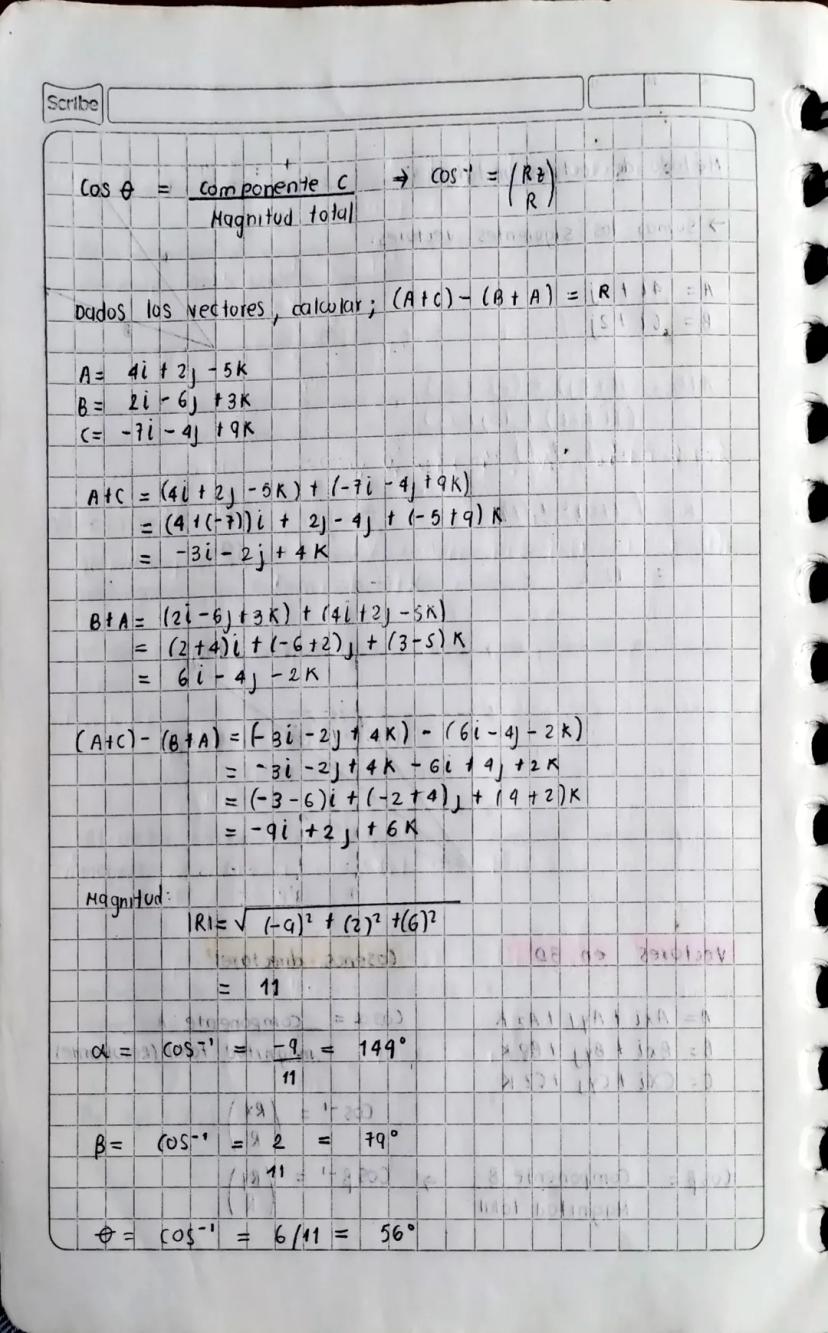 Scribe
Cos θ = componente C / Magnitud total → cos⁻¹ = (Rz / R)
Dados los vectores, calcular; (A+C) - (B + A) = R
A= 4i + 2j - 5K
B= 2i - 6j + 3K
C= -7i - 4j + 9K
A+C = (4i + 2j - 5K) + (-7i - 4j + 9K)
= (4+(-7))i + 2j - 4j + (-5+9) K
= -3i - 2j + 4 K
B+A= (2i - 6j + 3K) + (4i + 2j - 5K)
= (2+4)i + (-6+2)j + (3-5) K
= 6i - 4j - 2K
(A+C) - (B+A) = (-3i - 2j + 4K) - (6i - 4j - 2K)
= -3i - 2j + 4K - 6i + 4j + 2K
= (-3-6)i + (-2+4)j + (4+2)K
= -9i + 2j + 6K
Magnitud:
|R|= √(-9)² + (2)² + (6)²
= 11
α = cos⁻¹ = -9/11 = 149°
β = cos⁻¹ = 2/11 = 79°
θ = cos⁻¹ = 6/11 = 56°